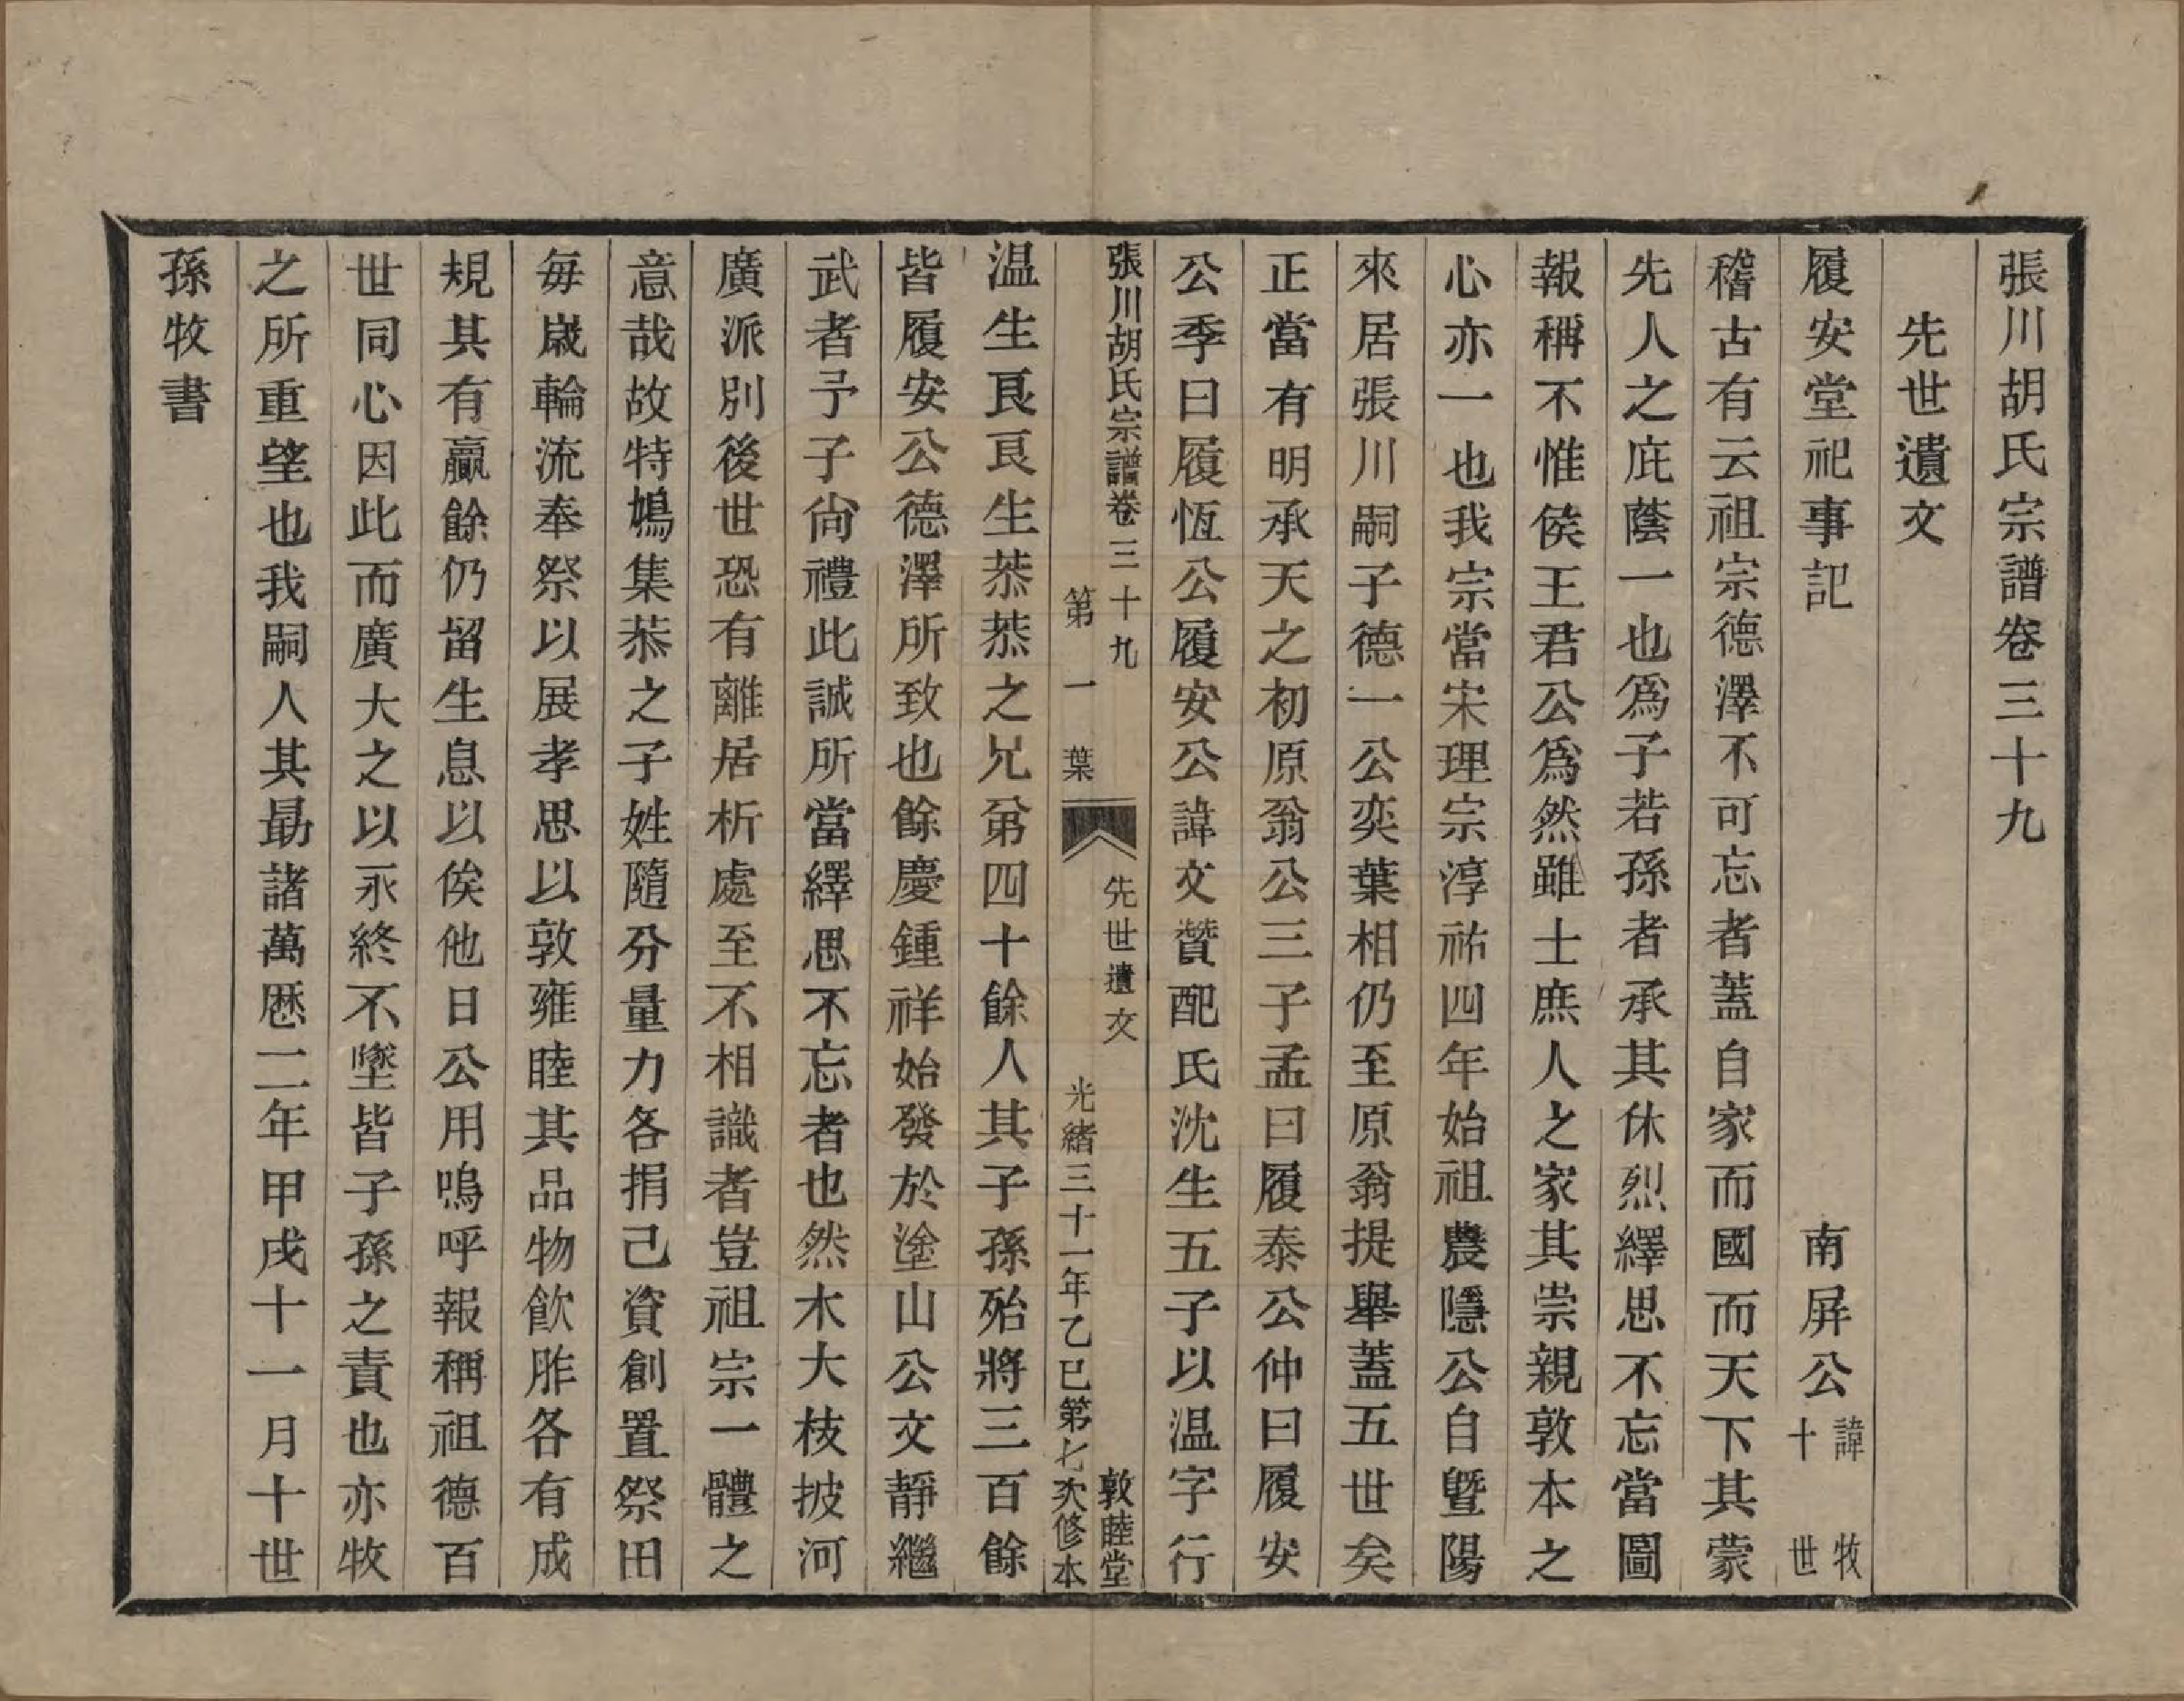 張川胡氏宗譜卷三十九
先世遺文
履安堂祀事記　南屏公諱牧十世
稽古有云祖宗德澤不可忘者蓋自家而國而天下其蒙
先人之庇蔭一也爲子若孫者承其休烈繹思不忘當圖
報稱不惟侯王君公爲然雖士庶人之家其崇親敦本之
心亦一也我宗當宋理宗淳祐四年始祖農隱公自暨陽
來居張川嗣子德一公奕葉相仍至原翁提舉蓋五世矣
正當有明承天之初原翁公三子孟曰履泰公仲曰履安
公季曰履恆公履安公諱文贊配氏沈生五子以温字行
張川胡氏宗譜卷三十九　先世遺文　敦睦堂
第一葉　光緒三十一年乙巳第七次修本
温生良良生恭恭之兄弟四十餘人其子孫殆將三百餘
皆履安公德澤所致也餘慶鍾祥始發於塗山公文靜繼
武者予子尙禮此誠所當繹思不忘者也然木大枝披河
廣派別後世恐有離居析處至不相識者豈祖宗一體之
意哉故特鳩集恭之子姓隨分量力各捐己資創置祭田
每歲輪流奉祭以展孝思以敦雍睦其品物飮胙各有成
規其有贏餘仍留生息以俟他日公用嗚呼報稱祖德百
世同心因此而廣大之以永終不墜皆子孫之責也亦牧
之所重望也我嗣人其勗諸萬厯二年甲戌十一月十世
孫牧書